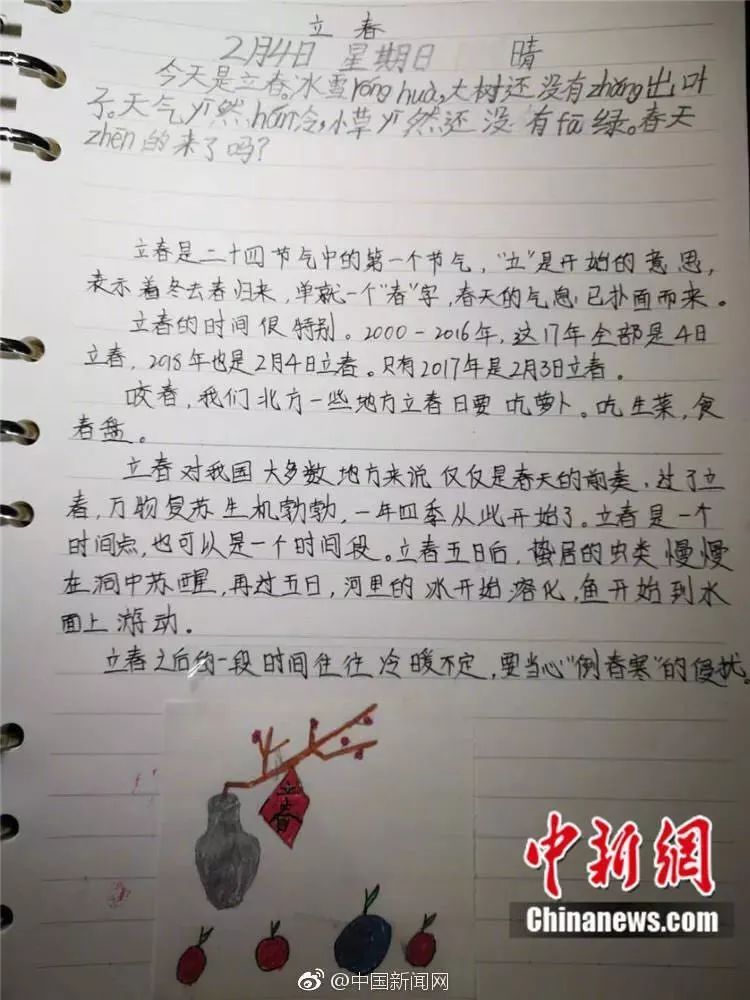 立春
2月4日 星期日 晴
今天是立春。冰雪róng huà,大树还没有zhǎng出叶
子。天气仍然hán冷,小草仍然还没有fā绿。春天
zhēn的来了吗?
立春是二十四节气中的第一个节气,“立”是开始的意思,
表示着冬去春归来,单就一个“春”字,春天的气息已扑面而来。
立春的时间很特别。2000-2016年,这17年全部是4日
立春,2018年也是2月4日立春。只有2017年是2月3日立春。
咬春,我们北方一些地方立春日要吃萝卜。吃生菜,食
春盘。
立春对我国大多数地方来说仅仅是春天的前奏,过了立
春,万物复苏生机勃勃,一年四季从此开始了。立春是一个
时间点,也可以是一个时间段。立春五日后,蛰居的虫类慢慢
在洞中苏醒,再过五日,河里的冰开始溶化,鱼开始到水
面上游动。
立春之后的一段时间往往冷暖不定,要当心“倒春寒”的侵扰。
立春
中新網
Chinanews.com
@中国新闻网